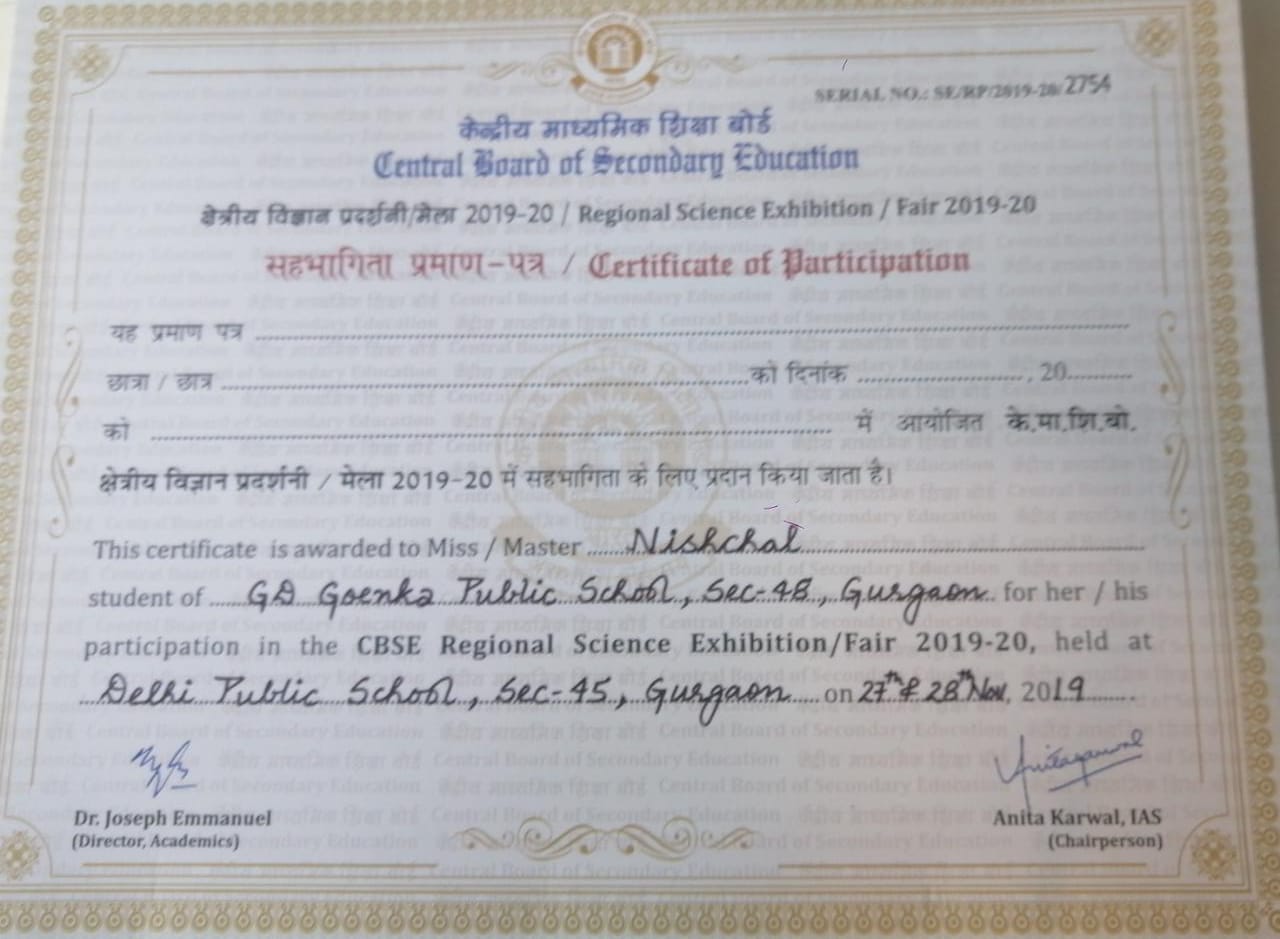 SERIAL NO.: SE/RP/2019-20/2754
केन्द्रीय माध्यमिक शिक्षा बोर्ड
Central Board of Secondary Education
क्षेत्रीय विज्ञान प्रदर्शनी/मेला 2019-20 / Regional Science Exhibition / Fair 2019-20
सहभागिता प्रमाण-पत्र / Certificate of Participation
यह प्रमाण पत्र
छात्रा / छात्र को दिनांक , 20
को में आयोजित के.मा.शि.बो.
क्षेत्रीय विज्ञान प्रदर्शनी / मेला 2019-20 में सहभागिता के लिए प्रदान किया जाता है।
This certificate is awarded to Miss / Master Nishchal
student of GD Goenka Public School, Sec-48, Gurgaon for her / his
participation in the CBSE Regional Science Exhibition/Fair 2019-20, held at
Delhi Public School, Sec-45, Gurgaon on 27th & 28th Nov, 2019
Dr. Joseph Emmanuel
(Director, Academics)
Anita Karwal, IAS
(Chairperson)